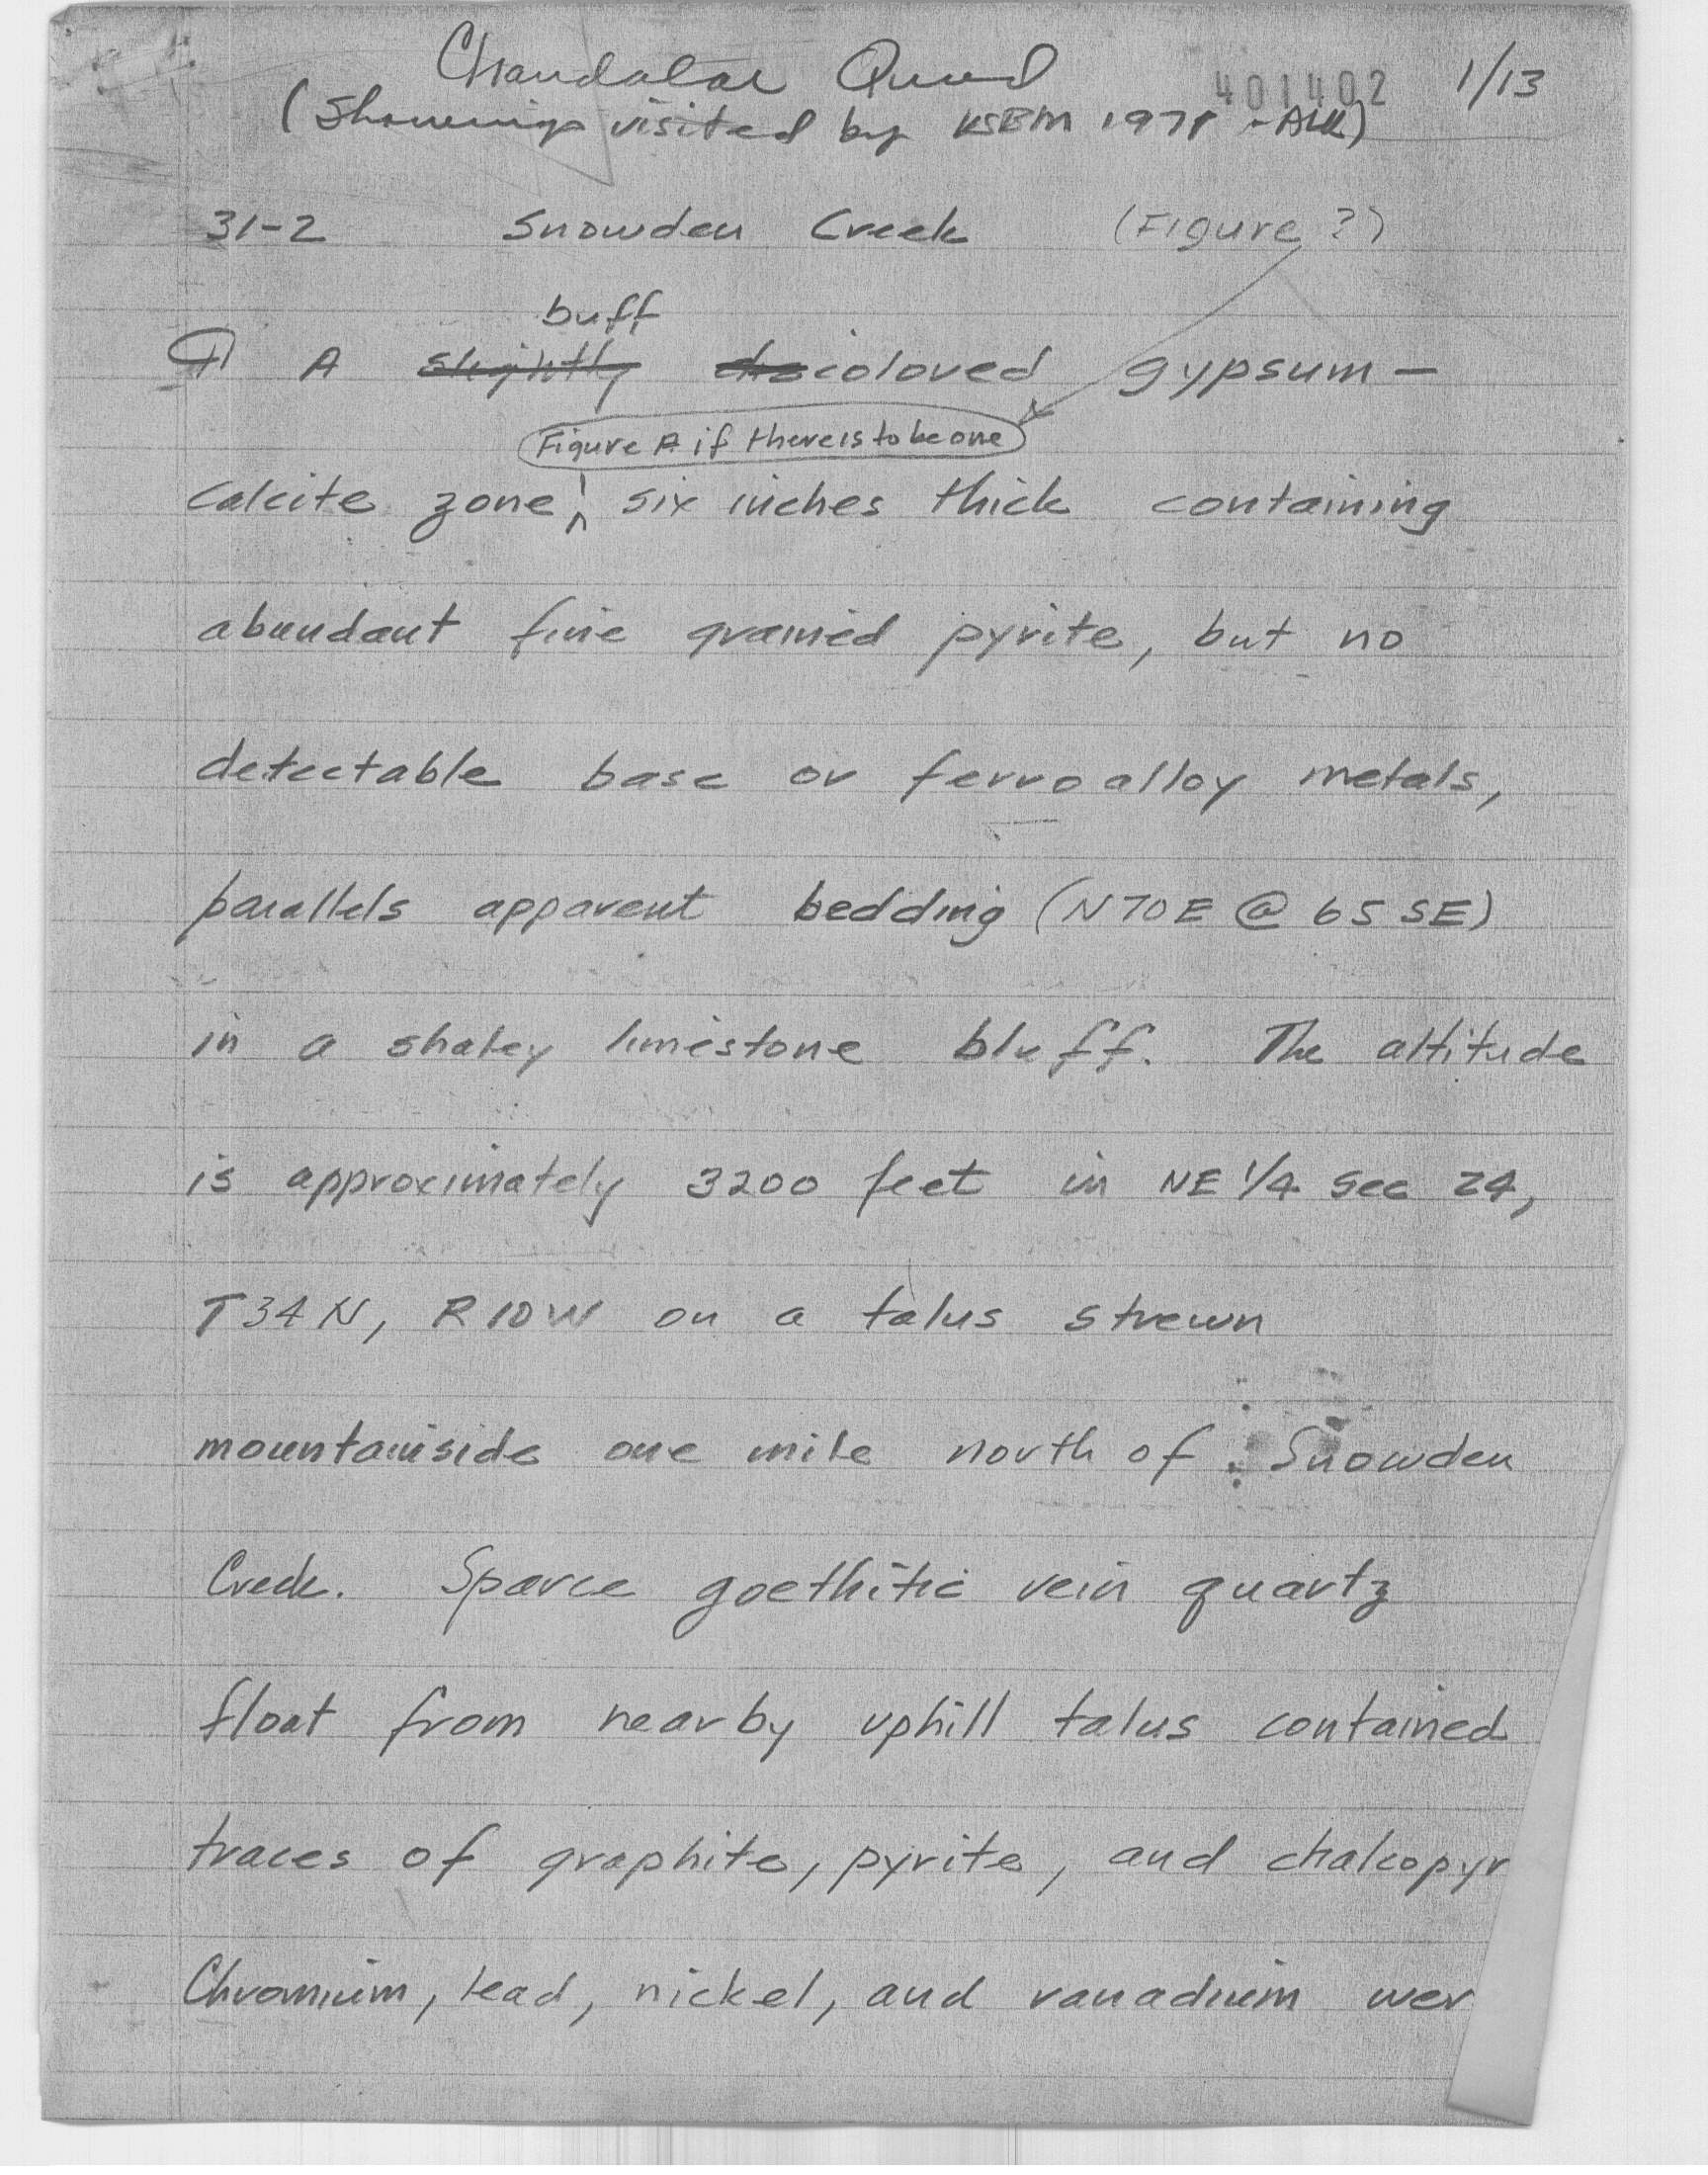 Chandalar Quad 401402 1/13
(Showings visited by USBM 1978 - AKK)
31-2 Snowden Creek (Figure ?)
buff
¶ A slightly discolored gypsum-
Figure A if there is to be one
calcite zone, six inches thick containing
abundant fine grained pyrite, but no
detectable base or ferroalloy metals,
parallels apparent bedding (N70E @ 65 SE)
in a shaley limestone bluff. The altitude
is approximately 3200 feet in NE 1/4 sec 24,
T34N, R10W on a talus strewn
mountainside one mile north of Snowden
Creek. Sparce goethitic vein quartz
float from nearby uphill talus contained
traces of graphite, pyrite, and chalcopyr
Chromium, lead, nickel, and vanadium wer